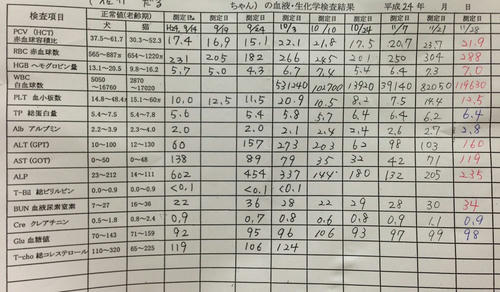 ちゃん）の血液・生化学検査結果 平成24年 月 日
検査項目 正常値(老齢期) 測定日 測定日 測定日 測定日 測定日 測定日 測定日 測定日 測定日
犬 猫 H24, 9/4 9/19 9/24 10/3 10/10 10/24 11/7 11/21 11/28
PCV (HCT) 赤血球容積比 37.5~61.7 30.3~52.3 17.4 16.9 15.1 22.1 21.8 17.5 20.7 23.7 21.9
RBC 赤血球数 565~887x 654~1220x 231 205 182 266 285 201 250 304 288
HGB ヘモグロビン量 13.1~20.5 9.8~16.2 5.7 5.0 4.3 6.7 7.4 5.4 6.4 7.3 7.0
WBC 白血球数 5050~16760 2870~17020 531240 102700 13920 39140 82050 119630
PLT 血小板数 14.8~48.4x 15.1~60x 10.0 12.5 11.5 20.9 10.5 8.2 7.5 14.4 12.5
TP 総蛋白量 5.4~7.5 5.4~7.8 5.6 5.4 5.8 5.7 6.4 6.4 6.2 6.4
Alb アルブミン 2.2~3.9 2.3~4.0 2.0 2.0 2.1 2.4 2.4 2.6 2.7 2.8
ALT (GPT) 10~100 12~130 60 157 273 203 62 98 103 160
AST (GOT) 0~50 0~48 138 89 79 35 32 42 71 119
ALP 23~212 14~111 602 454 337 144 180 132 205 235
T-Bil 総ビリルビン 0.0~0.9 0.0~0.9 <0.1 <0.1 <0.1
BUN 血液尿素窒素 7~27 16~36 22 36 28 22 29 28 30 34
Cre クレアチニン 0.5~1.8 0.8~2.4 0.9 0.7 0.8 0.6 0.8 0.9 1.1 0.9
Glu 血糖値 70~143 71~159 92 95 96 106 93 97 99 98
T-cho 総コレステロール 110~320 65~225 119 106 124